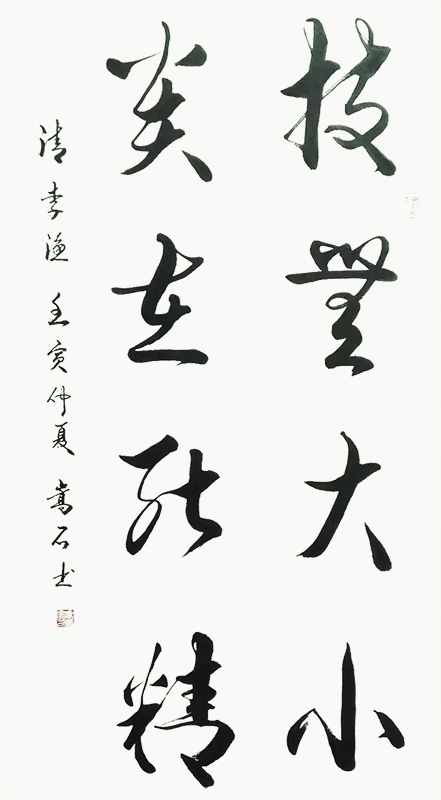 技無大小
貴在能精
清李渔 壬寅仲夏 嵩石书